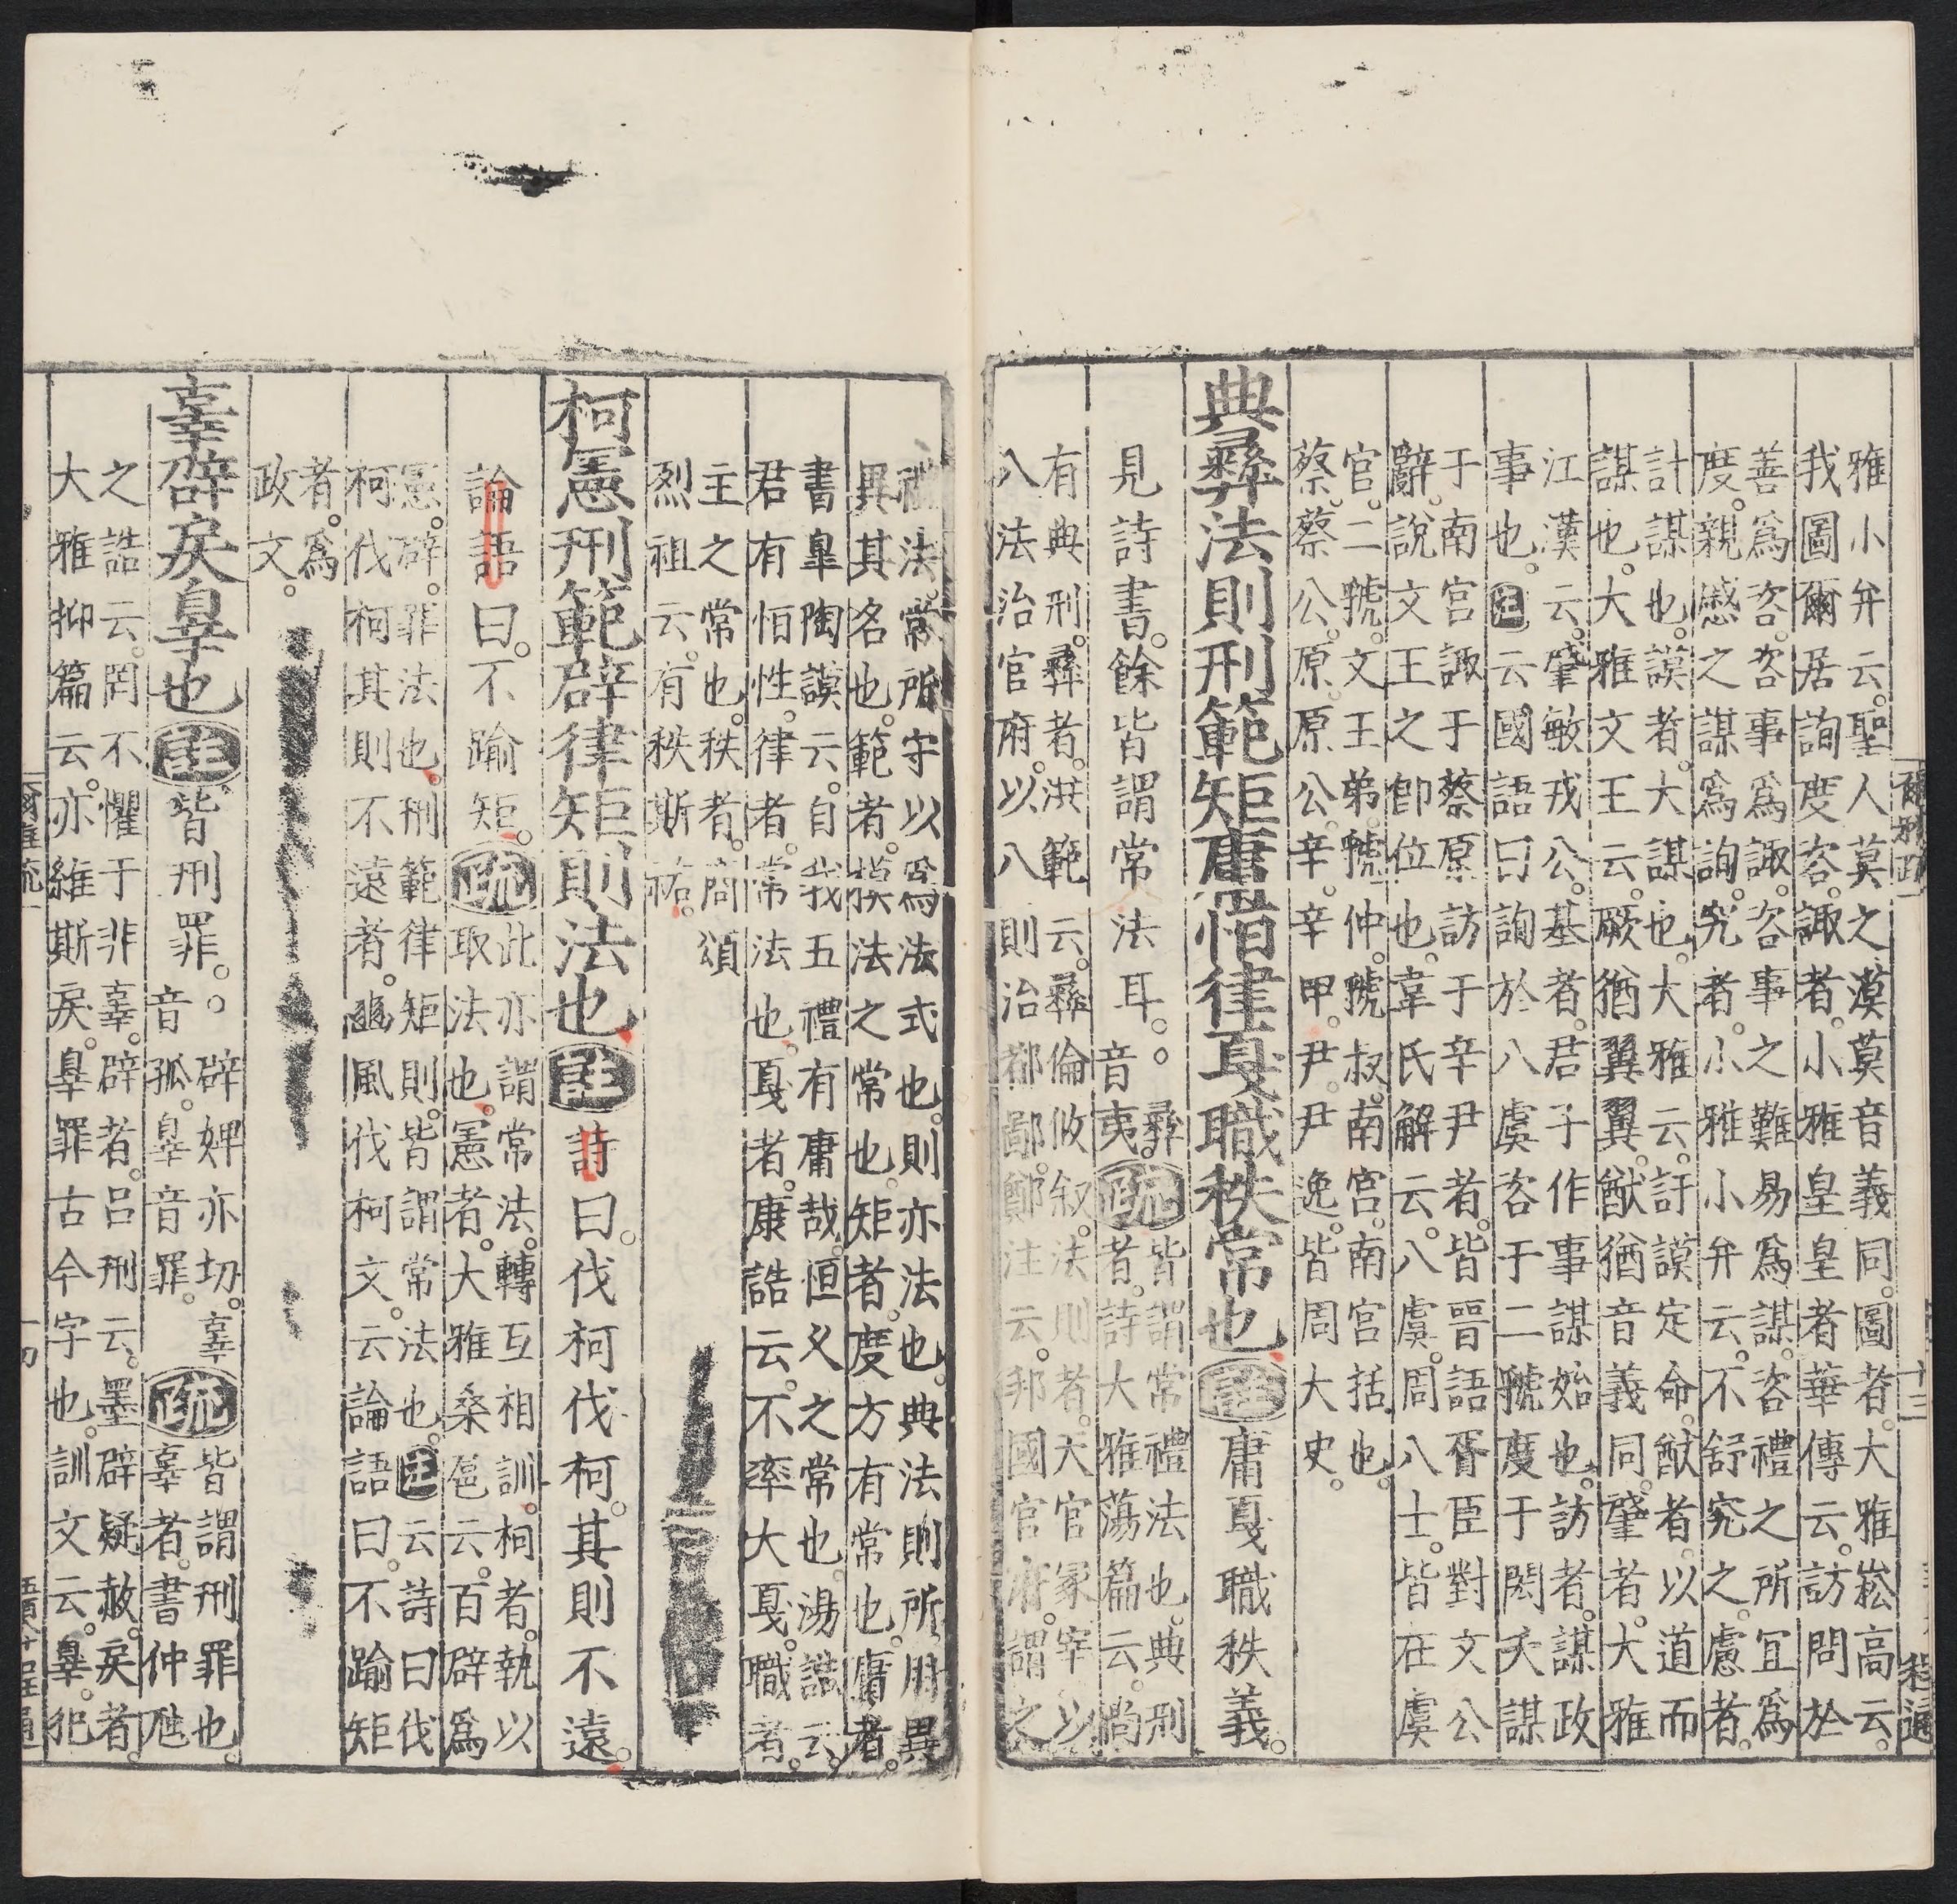 雅小弁云。聖人莫之漠莫音義同。圖者。大雅崧高云。
我圖爾居詢度咨。諏者。小雅皇皇者華傳云。訪問於
善爲咨。咨事爲諏。咨事之難易爲謀。咨禮之所宜爲
度。親慼之謀爲詢。究者。小雅小弁云。不舒究之。慮者。
計謀也。謨者。大謀也。大雅云。訏謨定命。猷者。以道而
謀也。大雅文王云。厥猶翼翼。猷猶音義同。肇者。大雅
江漢云。肇敏戎公。基者。君子作事謀始也。訪者。謀政
事也。注云國語曰詢於八虞咨于二虢度于閎夭謀
于南宮諏于蔡原訪于辛尹者。皆晉語胥臣對文公
辭。說文王之卽位也。韋氏解云。八虞。周八士。皆在虞
官。二虢。文王弟虢仲。虢叔。南宮。南宮括也。
蔡。蔡公。原。原公。辛。辛甲。尹。尹逸。皆周大史。
典彝法則刑範矩庸恒律戛職秩常也。注庸戛職秩義。
見詩書。餘皆謂常法耳。。彝音夷。疏皆謂常禮法也。典刑者。詩大雅蕩篇云。尚
有典刑。彝者。洪範云。彝倫攸叙。法則者。天官冢宰以
八法治官府。以八則治都鄙。鄭注云。邦國官府。謂之
禮法。常所守以爲法式也。則亦法也。典法則所用異
異其名也。範者。模法之常也。矩者。度方有常也。庸者。
書皐陶謨云。自我五禮有庸哉。恒乂之常也。湯誥云。
君有恒性。律者。常法也。戛者。康誥云。不率大戛。職者。
主之常也。秩者。商頌
烈祖云。有秩斯祜。
柯憲刑範辟律矩則法也。注詩曰。伐柯伐柯。其則不遠。
論語曰。不踰矩。疏此亦謂常法。轉互相訓。柯者。執以取法也。憲者。大雅桑扈云。百辟爲
憲。辟。罪法也。刑範律矩則。皆謂常法也。注云詩曰伐
柯伐柯其則不遠者。豳風伐柯文。云論語曰。不踰矩
者。爲
政文。
辜辟戾辠也。注皆刑罪。。辟婢亦切。辜音孤。辠音罪。疏皆謂刑罪也。辜者。書仲虺
之誥云。罔不懼于非辜。辟者。呂刑云。墨辟疑赦。戾者。
大雅抑篇云。亦維斯戾。辠罪古今字也。訓文云。辠。犯